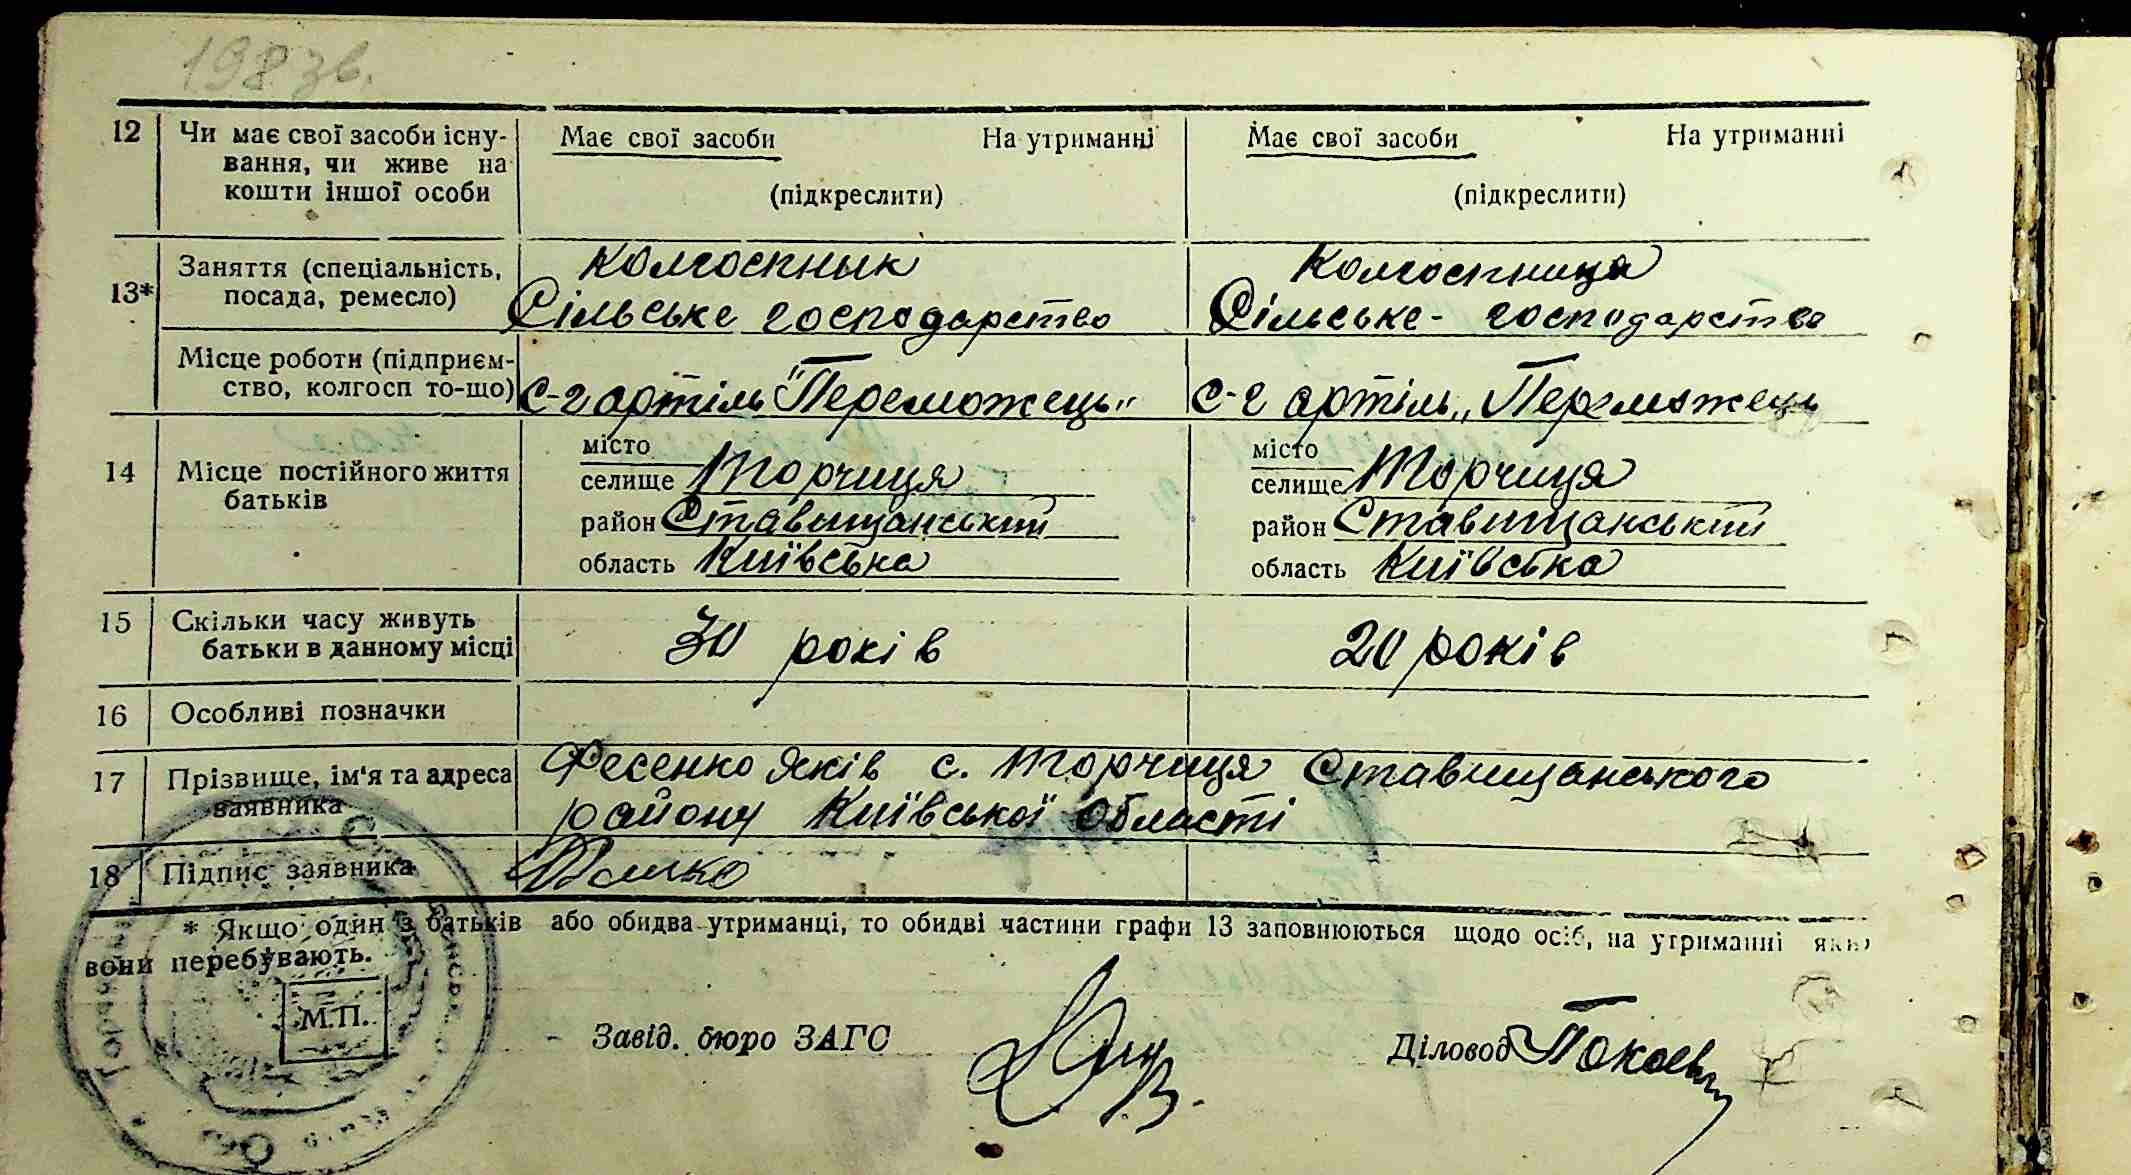 198 зв.
12 Чи має свої засоби існу-
вання, чи живе на
кошти іншої особи
Має свої засоби На утриманні
(підкреслити)
Має свої засоби На утриманні
(підкреслити)
13* Заняття (спеціальність,
посада, ремесло)
Колгоспнык
Сільське господарство
Колгоспница
Сільське- господарство
Місце роботи (підприєм-
ство, колгосп то-що)
С-г артіль "Переможець"
С-г артіль „Переможець
14 Місце постійного життя
батьків
місто
селище Торчиця
район Ставищанський
область Київська
місто
селище Торчиця
район Ставищанський
область Київська
15 Скільки часу живуть
батьки в данному місці
30 років
20 років
16 Особливі позначки
17 Прізвище, ім'я та адреса
заявника
Фесенко Яків с. Торчиця Ставищанського
району Київської області
18 Підпис заявника
* Якщо один із батьків або обидва утриманці, то обидві частини графи 13 заповнюються щодо осіб, на утриманні яких
вони перебувають.
М.П.
Завід. бюро ЗАГС
Діловод